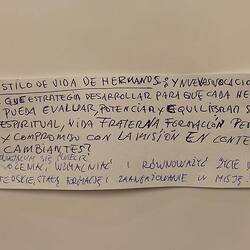 STILO DE VIDA DE HERMANOS: Y NUEVAS VOCACIO
QUE ESTRATEGIA DESARROLLAR PARA QUE CADA HE
PUEDA EVALUAR, POTENCIAR Y EQUILIBRAR S
ESPIRITUAL, VIDA FRATERNA FORMACIÓN PE
Y COMPROMISO CON LA MISIÓN EN CONTE
CAMBIANTES?
OCENIAĆ, WZMACNIAĆ I RÓWNOWAŻYĆ ŻYCIE
TERSKIE, STAŁĄ FORMACJĘ I ZAANGAŻOWANIE W MISJĘ